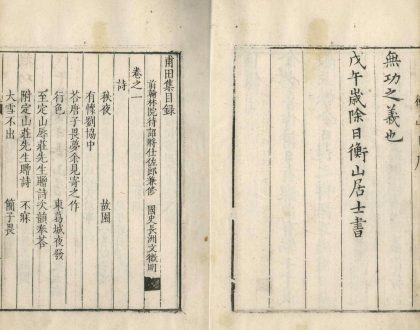 無功之義也
戊午歲除日衡山居士書
甫田集目録
前翰林院待詔將仕佐郎兼修 國史長洲文徵明
卷之一
詩
秋夜 故園
有懷劉協中
荅唐子畏夢余見寄之作
行色 東葛城夜發
至定山辱莊先生贈詩次韻奉荅
附定山莊先生贈詩 不寐
大雪不出 簡子畏